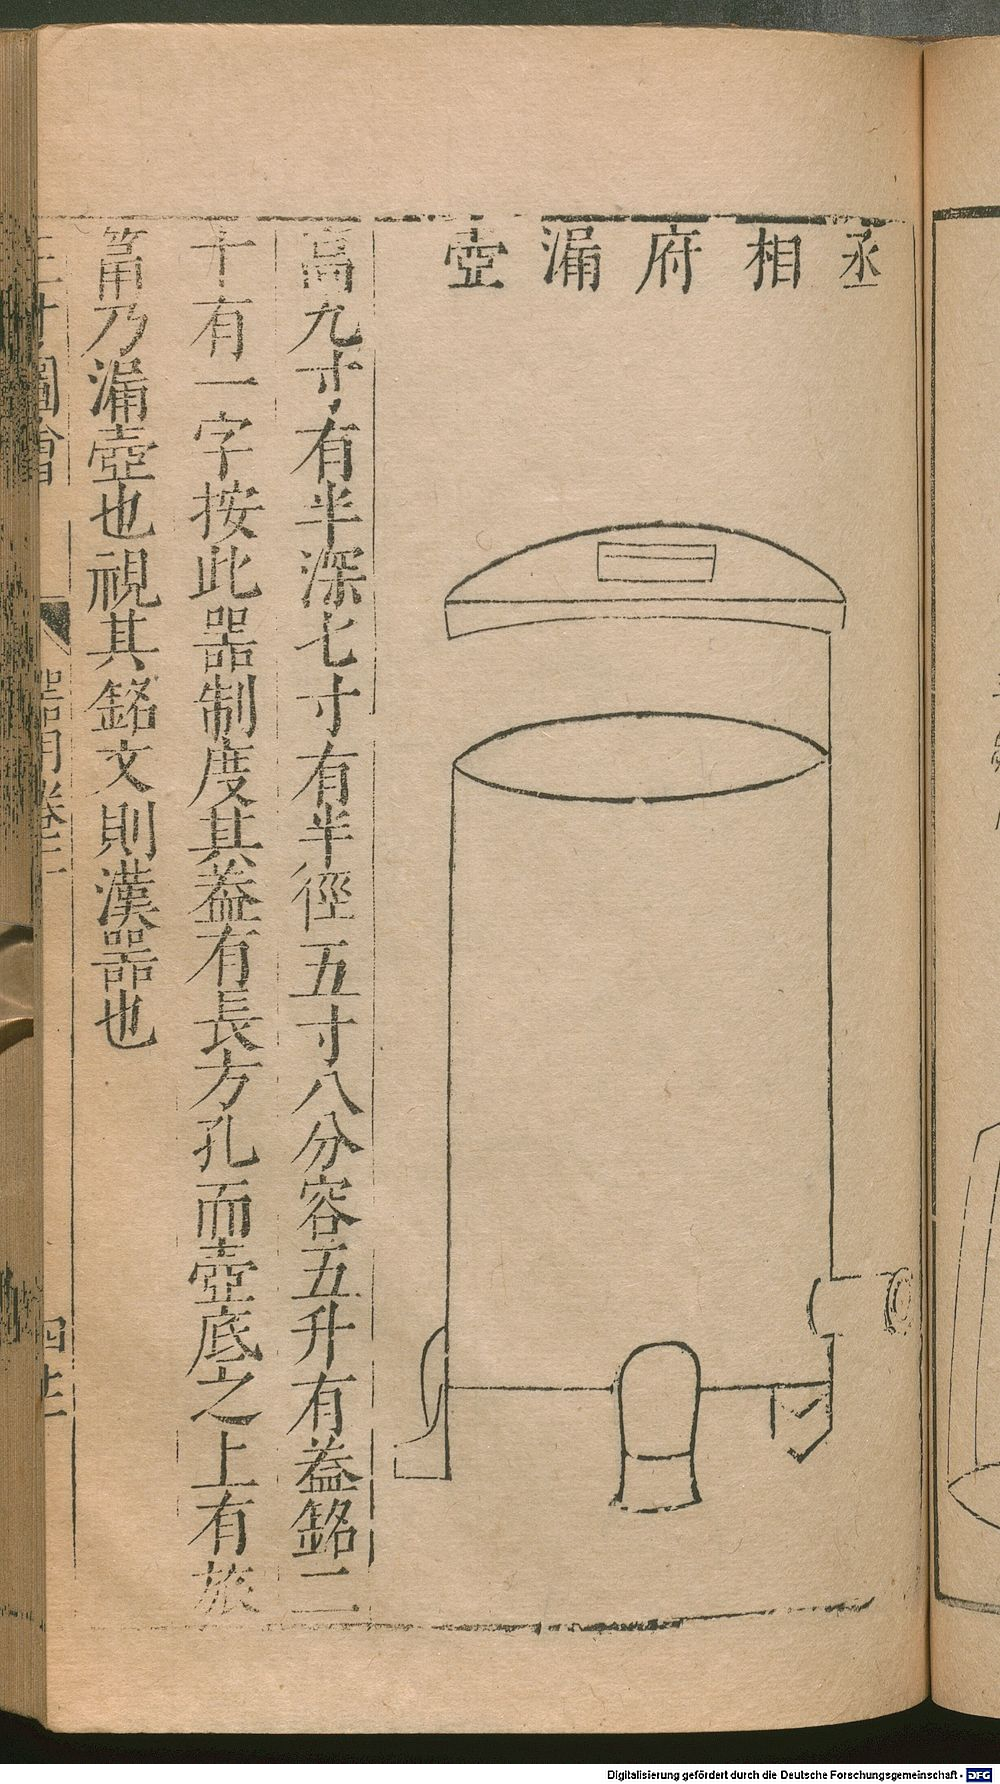 丞相府漏壺
高九寸有半深七寸有半徑五寸八分容五升有蓋銘二
十有一字按此器制度其蓋有長方孔而壺底之上有旅
筩乃漏壺也視其銘文則漢器也
三才圖會
器用卷二
Digitalisierung gefördert durch die Deutsche Forschungsgemeinschaft - DFG